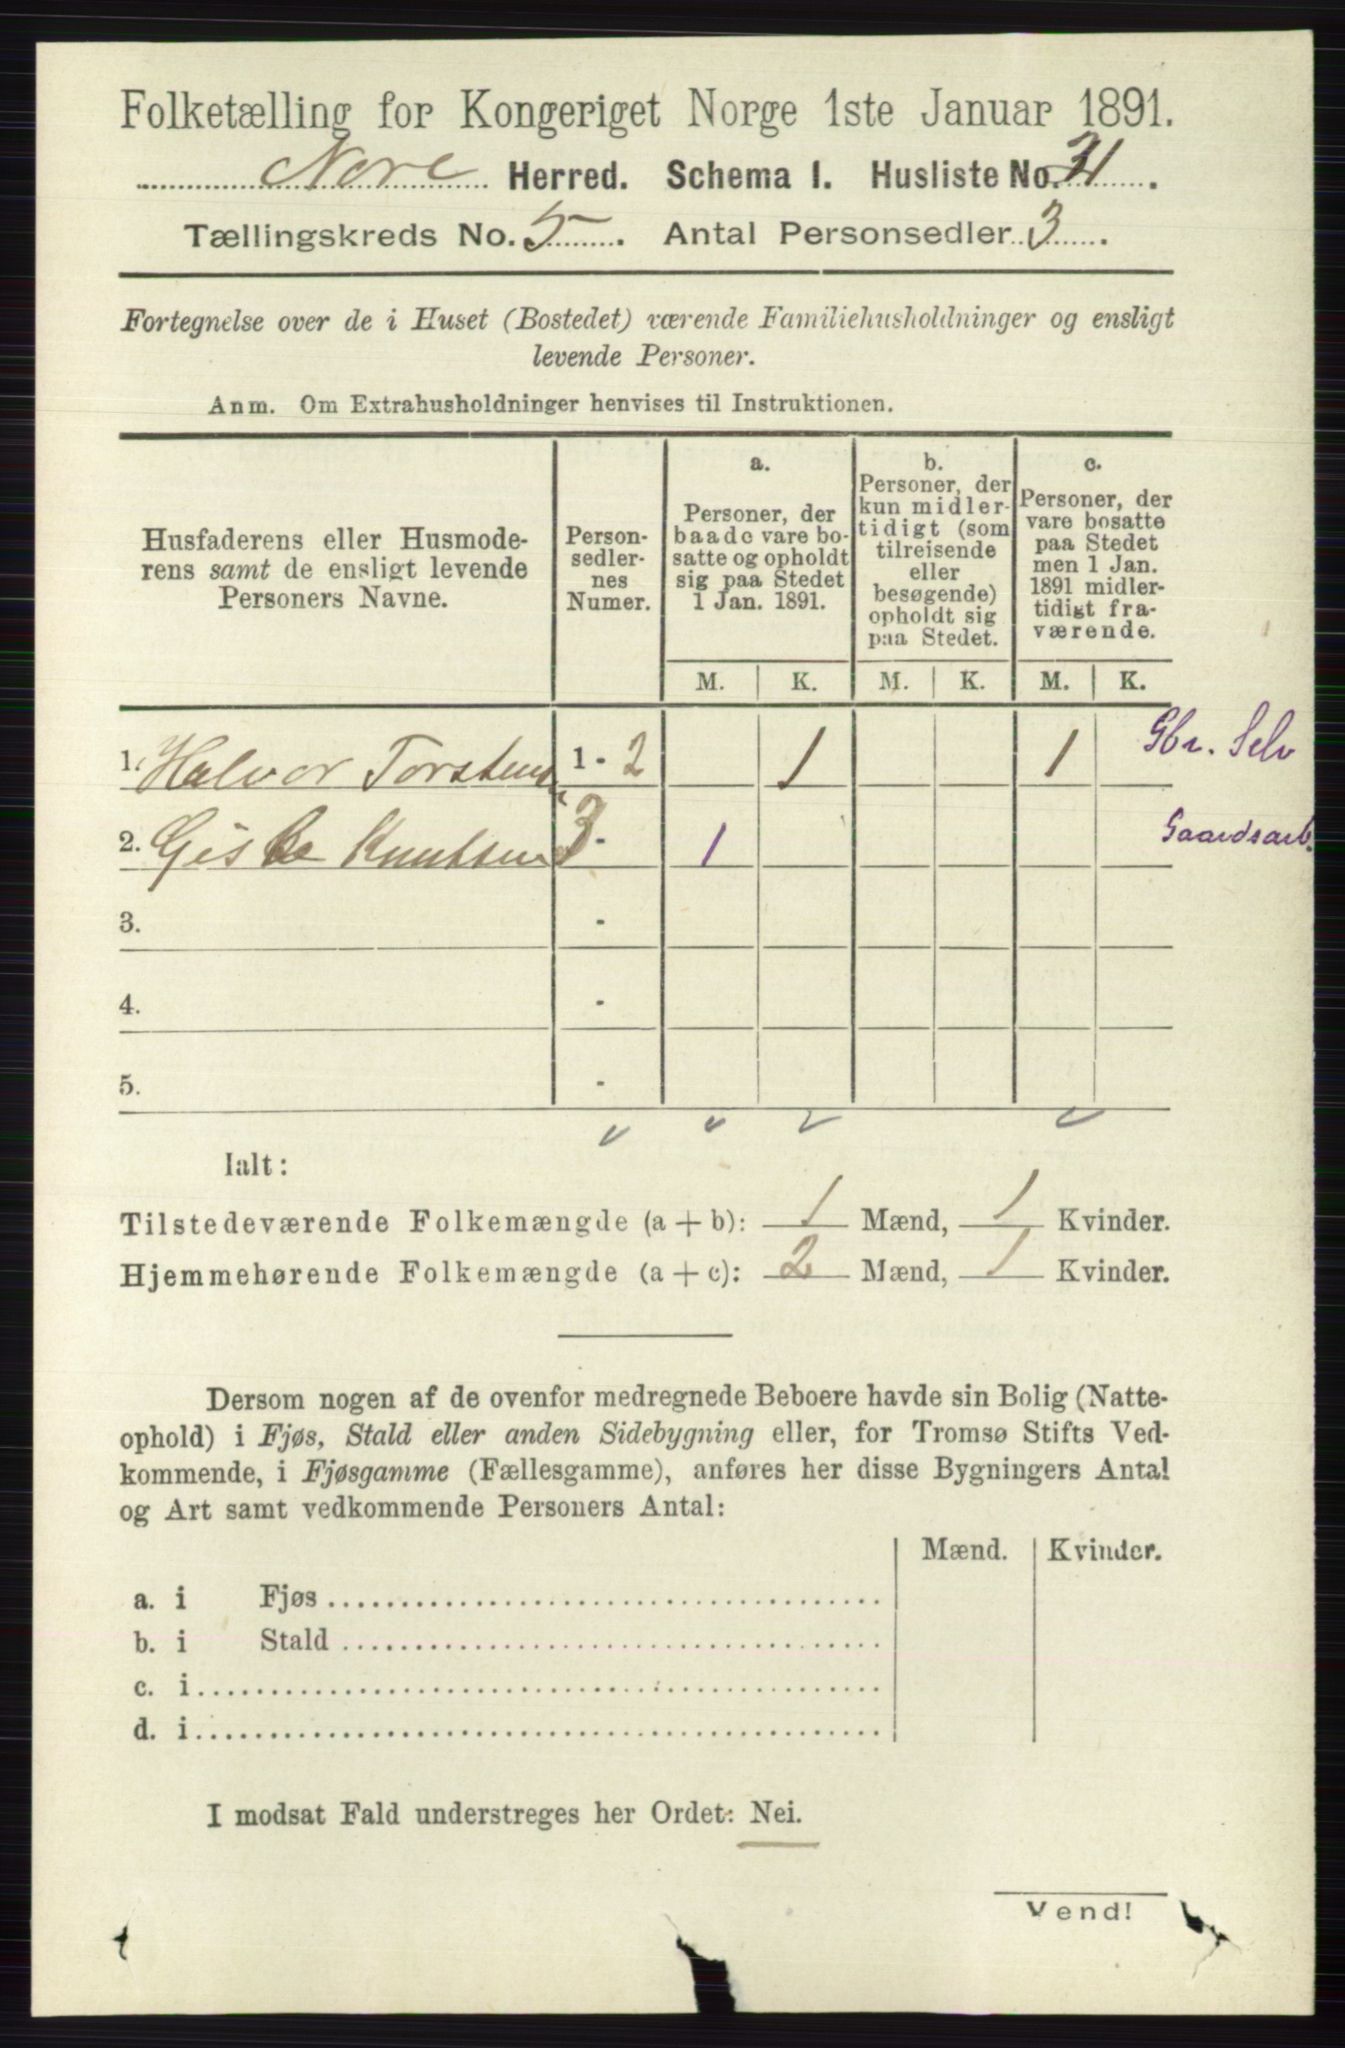 Folketælling for Kongeriget Norge 1ste Januar 1891.
Nore Herred. Schema I. Husliste No. 31.
Tællingskreds No. 5. Antal Personsedler 3.
Fortegnelse over de i Huset (Bostedet) værende Familiehusholdninger og ensligt
levende Personer.
Anm. Om Extrahusholdninger henvises til Instruktionen.
Husfaderens eller Husmode-
rens samt de ensligt levende
Personers Navne.
Person-
sedler-
nes
Numer.
a.
Personer, der
baade vare bo-
satte og opholdt
sig paa Stedet
1 Jan. 1891.
b.
Personer, der
kun midler-
tidigt (som
tilreisende
eller
besøgende)
opholdt sig
paa Stedet.
c.
Personer, der
vare bosatte
paa Stedet
men 1 Jan.
1891 midler-
tidigt fra-
værende.
M. K. M. K. M. K.
1. Halvor Torstens 1 - 2 1 1 Gbr. Selv
2. Giske Knutsen 3 - 1 Gaardsarb.
3. -
4. -
5. -
Ialt:
Tilstedeværende Folkemængde (a + b): 1 Mænd, 1 Kvinder.
Hjemmehørende Folkemængde (a + c): 2 Mænd, 1 Kvinder.
Dersom nogen af de ovenfor medregnede Beboere havde sin Bolig (Natte-
ophold) i Fjøs, Stald eller anden Sidebygning eller, for Tromsø Stifts Ved-
kommende, i Fjøsgamme (Fællesgamme), anføres her disse Bygningers Antal
og Art samt vedkommende Personers Antal:
Mænd. Kvinder.
a. i Fjøs
b. i Stald
c. i
d. i
I modsat Fald understreges her Ordet: Nei.
Vend!